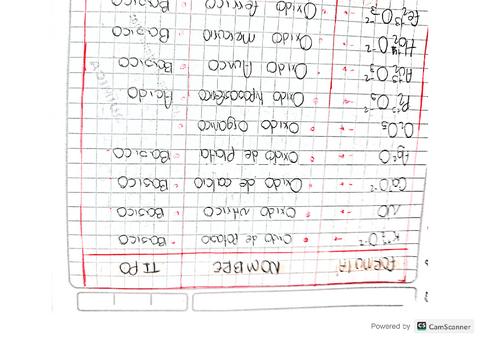 FORMULA NOMBRE TIPO
K₂⁺¹O⁻² → Oxido de Potaso • Basico
NO → Oxido Nitrico • Basico
CaO⁻² → Oxido de calcio • Basico
Ag₂O → Oxido de Plata • Basico
O₂O₅ → Oxido Organico
P₂⁺⁵O₅⁻² → Oxido Acido
Au₂⁺³O₃⁻² → Oxido Aurico • Basico
O₂⁻² → Oxido mercurio • Basico
Fe₂⁺³O₃⁻² → Oxido ferrico • Basico
Powered by CS CamScanner